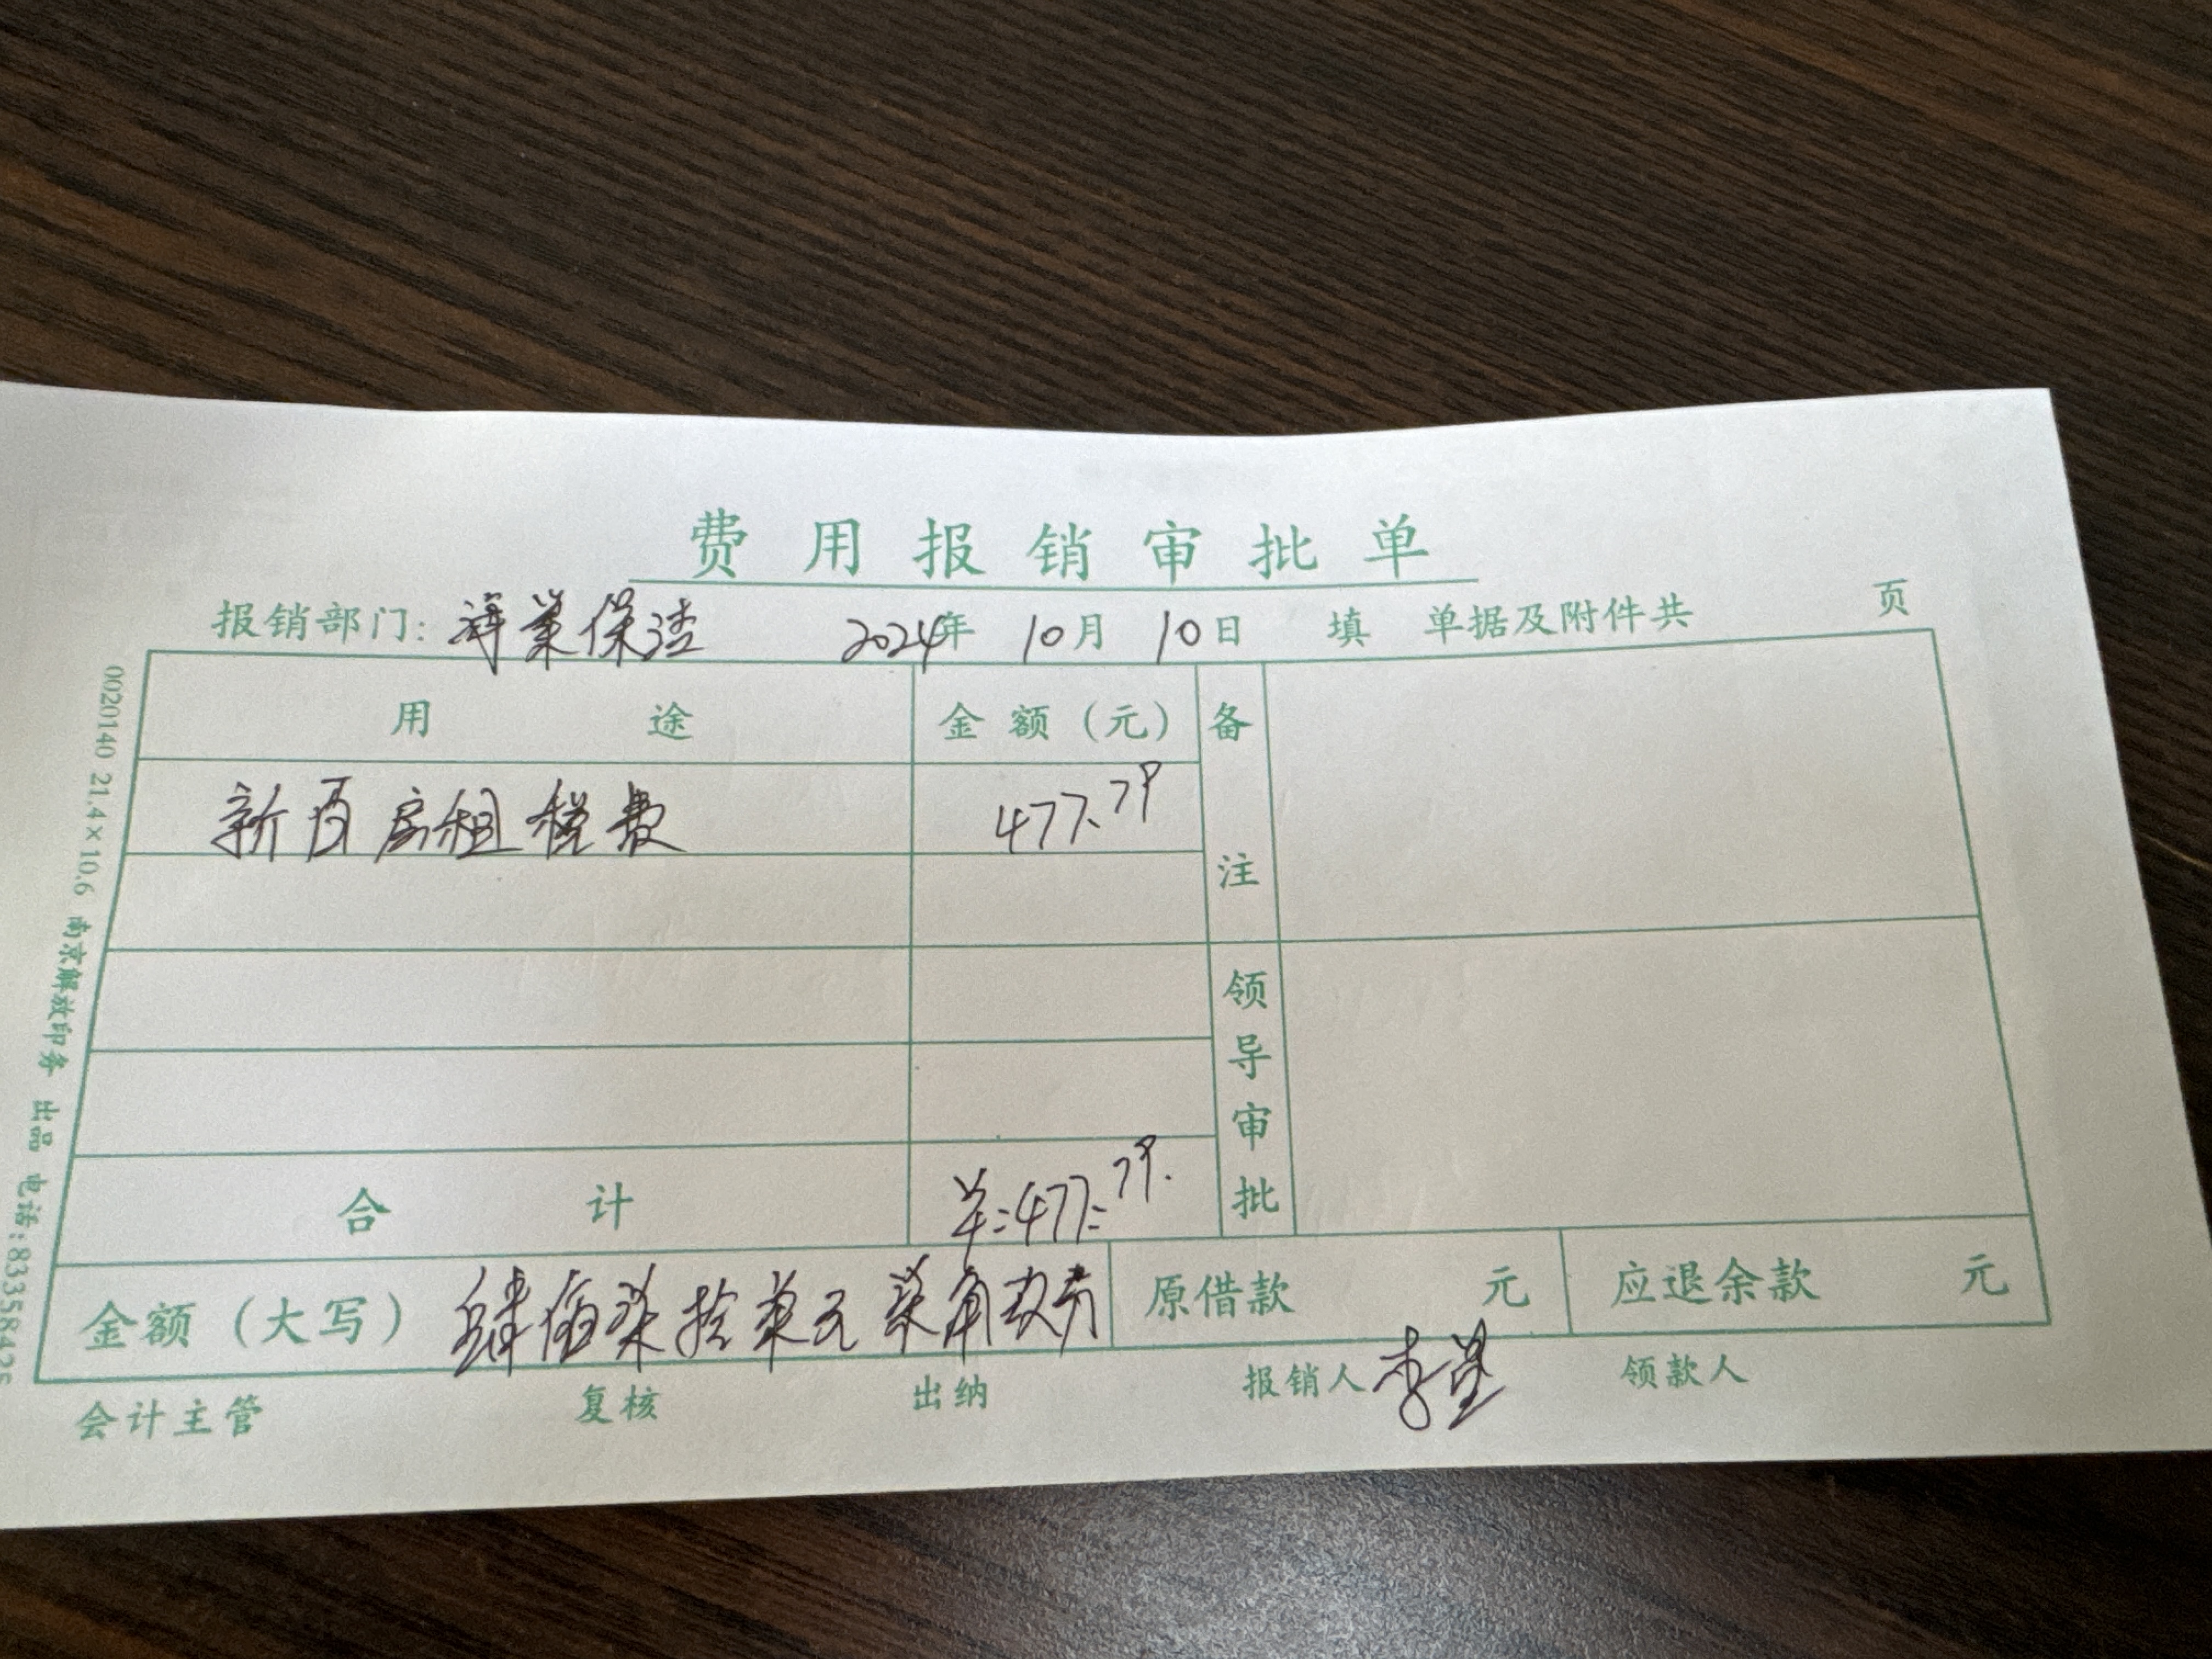 费用报销审批单
报销部门：祥业保洁 2024年 10月 10日 填 单据及附件共 页
用途 金额（元） 备注
新百房租税费 477.79
合计 ¥:477.79.
领导审批
金额（大写） 肆佰柒拾柒元柒角玖分 原借款 元 应退余款 元
会计主管 复核 出纳 报销人 李 领款人
0020140 21.4×10.6 南京解放印务 出品 电话:83358426